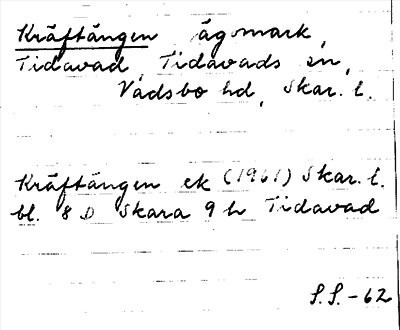 Kräftängen ägomark,
Tidavad, Tidavads sn,
Vadsbo hd, Skar. l.
Kräftängen ek (1961) Skar. l.
bl. 8 D Skara 9 h Tidavad
S.S. -62